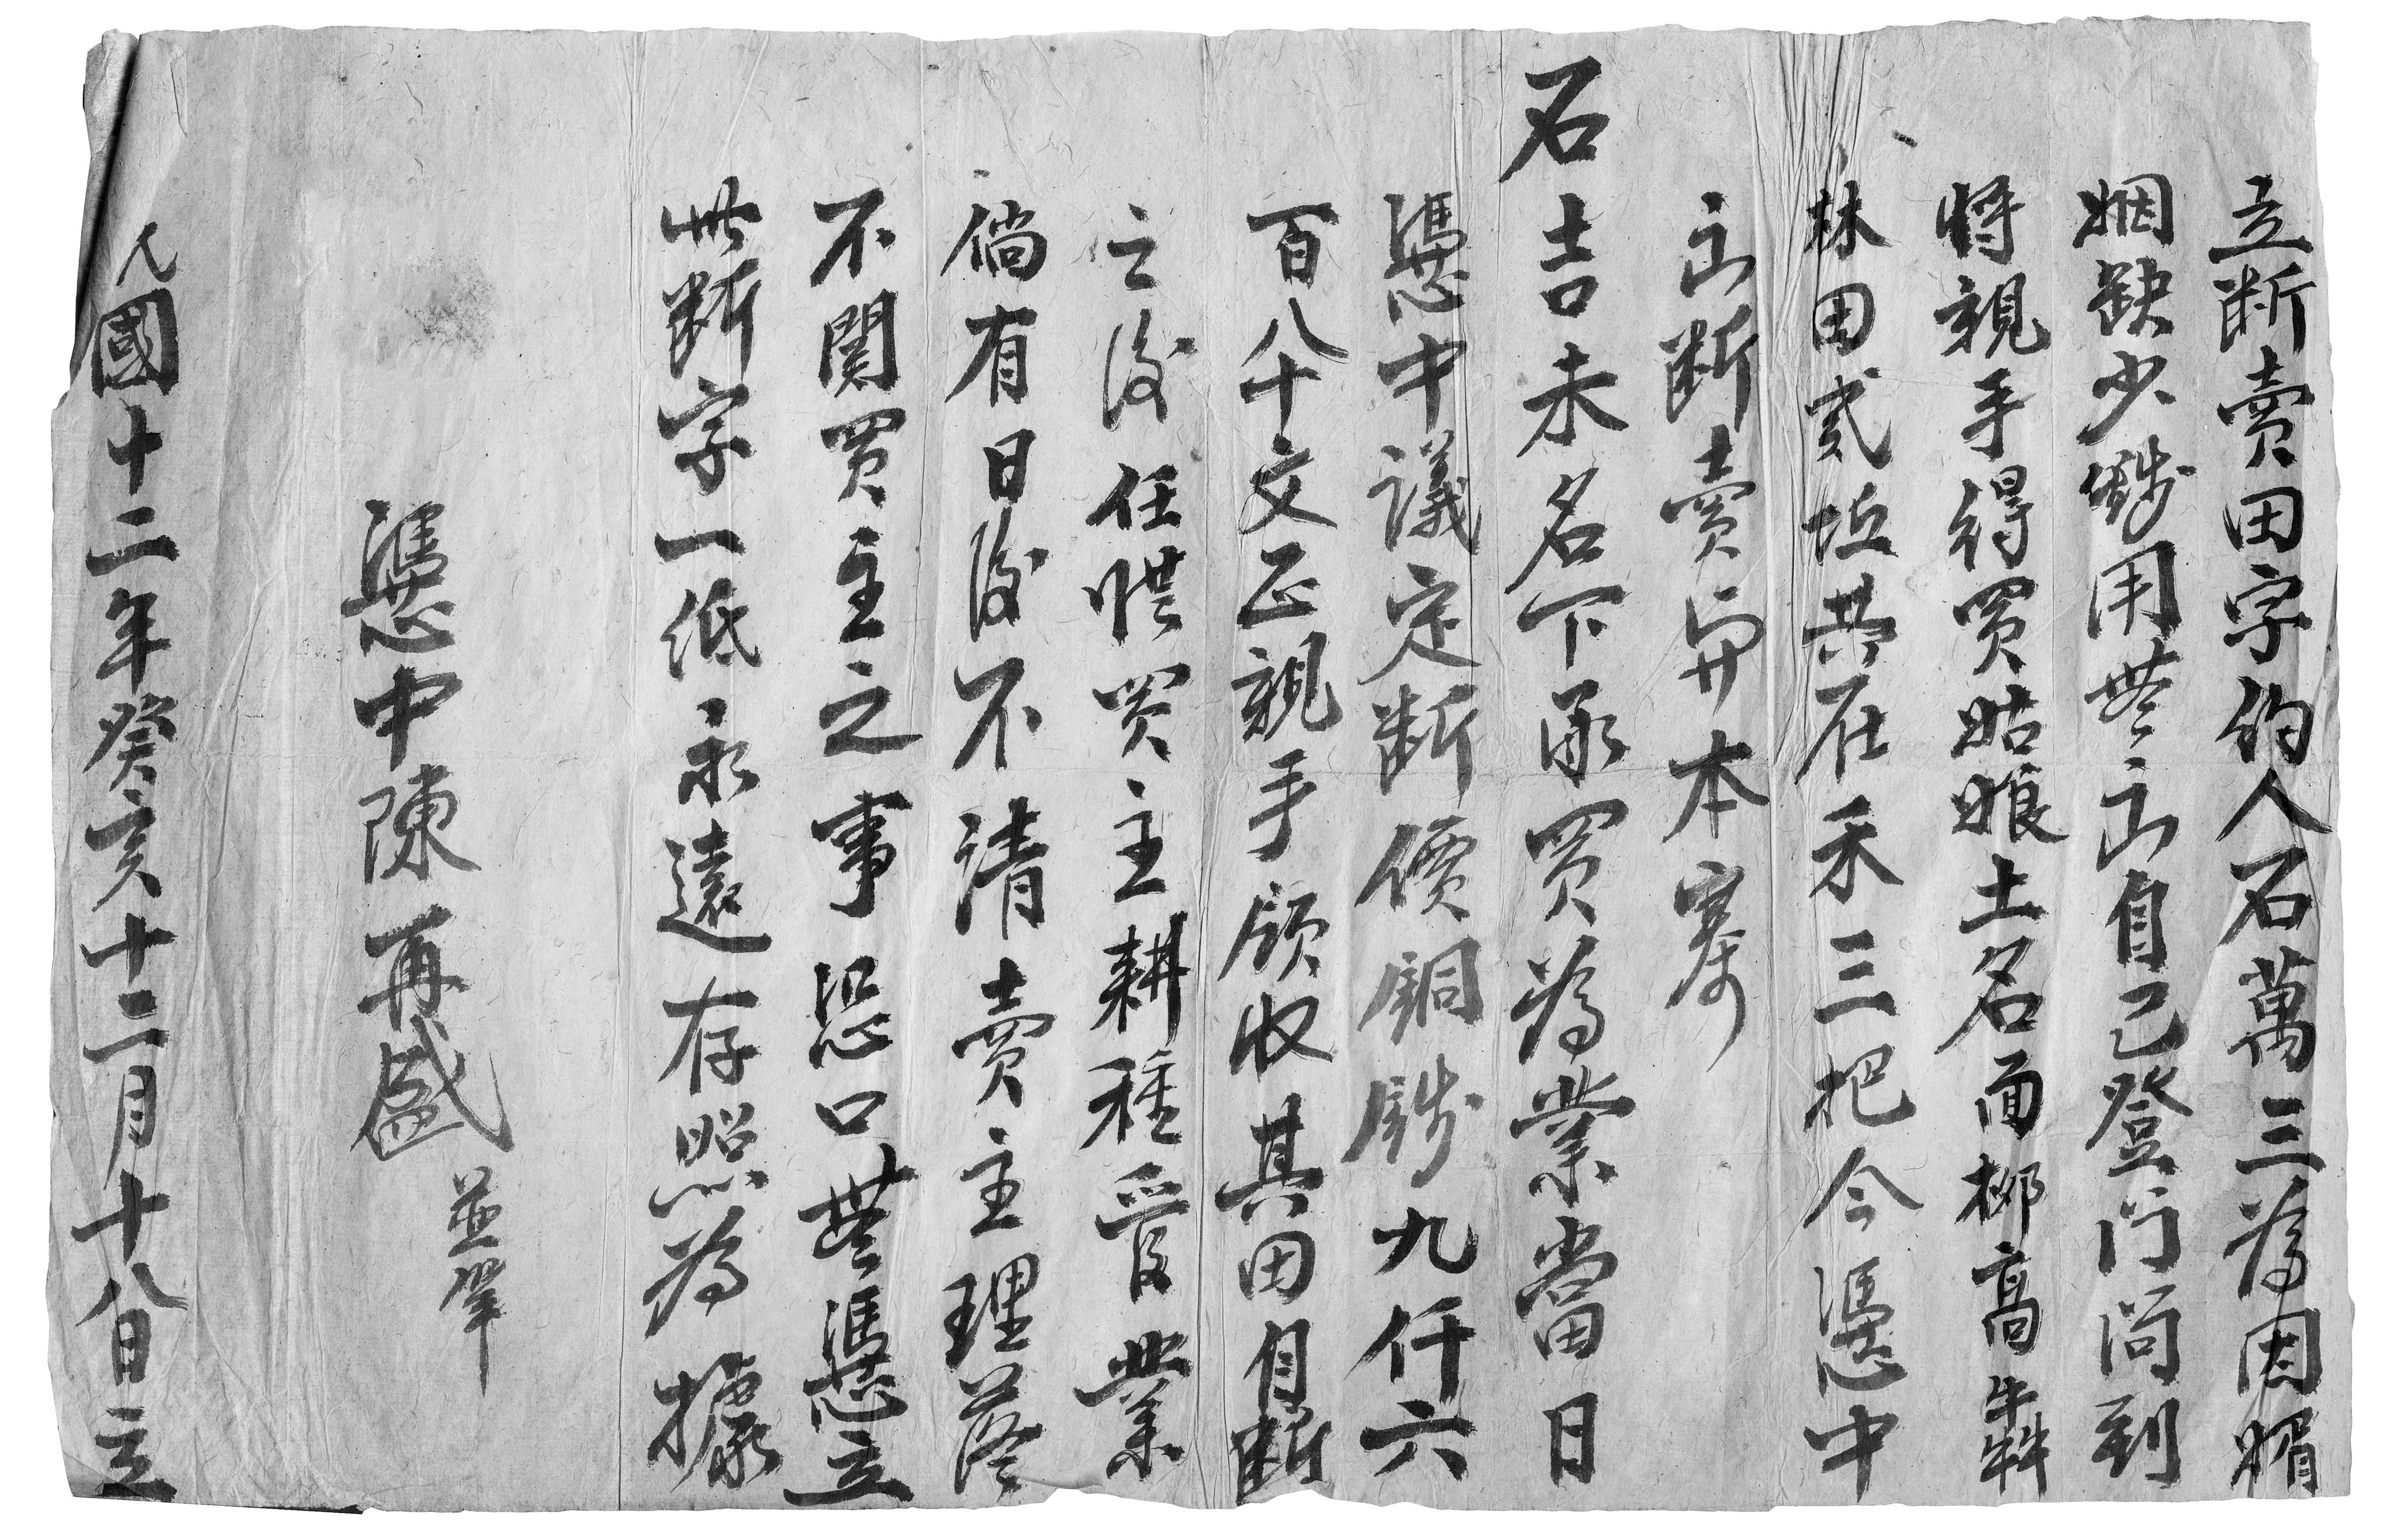 立断賣田字約人石萬三為因婚
姻缺少錢用無出自己登门问到
将親手得買姑娘土名面柳高犇
林田貳坵共在禾三把今憑中
出断賣與本寨
石吉未名下承買為業當日
憑中議定断價銅錢九仟六
百八十文正親手領收其田自断
之後任從買主耕種管業
倘有日後不清賣主理落
不関買主之事恐口無憑立
此断字一低永遠存照為據
憑中陳再盛
並筆
民國十二年癸亥十二月十八日立